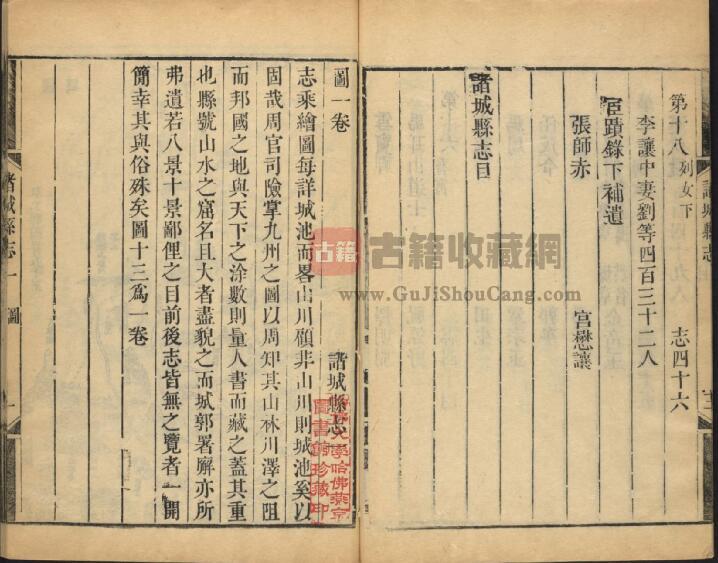 第十八 列女下 志四十六
李讓中妻劉等四百三十二人
宦蹟錄下補遺
張師赤 宮懋讓
諸城縣志目
諸城縣志
十二
圖一卷 諸城縣志一
志乘繪圖每詳城池而畧山川顧非山川則城池奚以
固哉周官司險掌九州之圖以周知其山林川澤之阻
而邦國之地與天下之涂數則量人書而藏之蓋其重
也縣號山水之窟名且大者盡貌之而城郭署廨亦所
弗遺若八景十景鄙俚之目前後志皆無之覽者一開
簡幸其與俗殊矣圖十三爲一卷
諸城縣志一 圖 一
哈佛大學哈佛燕京
圖書館珍藏印
古籍 古籍收藏網
www.GuJiShouCang.com